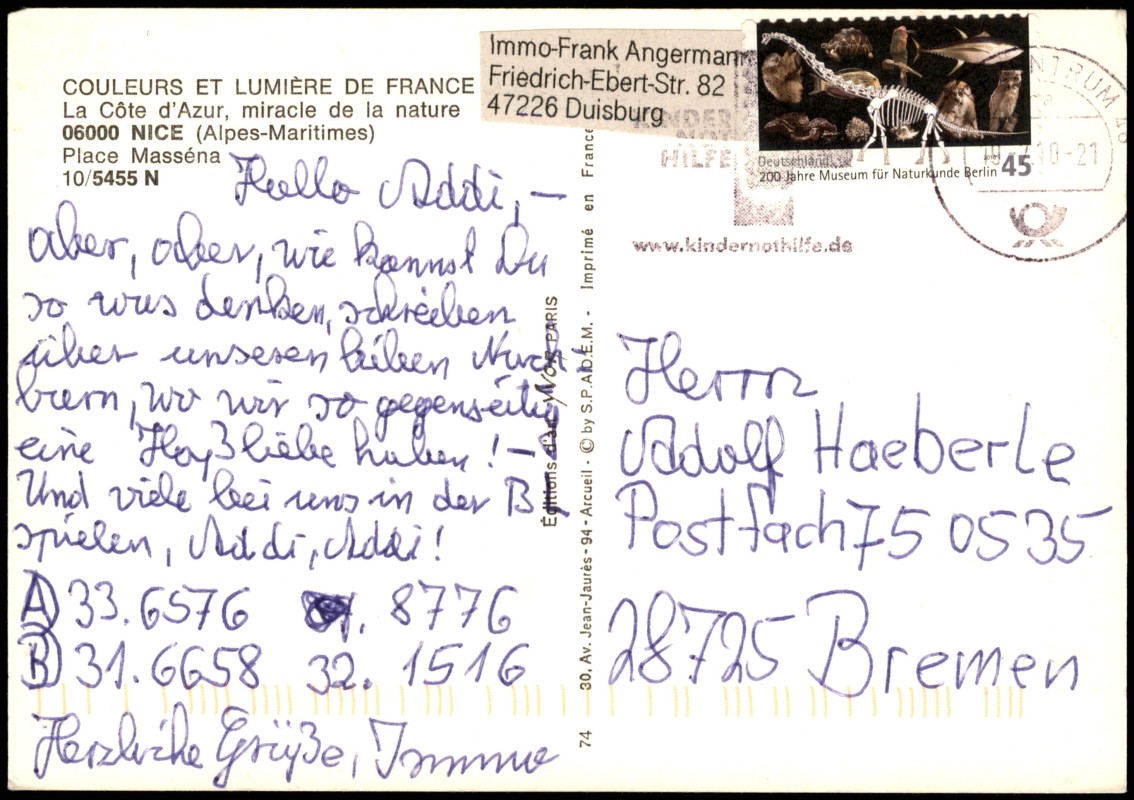 COULEURS ET LUMIÈRE DE FRANCE
La Côte d'Azur, miracle de la nature
06000 NICE (Alpes-Maritimes)
Place Masséna
10/5455 N
Immo-Frank Angermann
Friedrich-Ebert-Str. 82
47226 Duisburg
KINDER
NOT
HILFE
www.kindernothilfe.de
Deutschland
200 Jahre Museum für Naturkunde Berlin 45
ZENTRUM 46
10-21
Hallo Addi, –
aber, aber, wie kannst Du
so was denken, schreiben
über unseren lieben Nach-
barn, wo wir so gegenseitig
eine Haßliebe haben! –
Und viele bei uns in der B
spielen, Addi, Addi!
A) 33. 6576 8776
B) 31. 6658 32. 1516
Herzliche Grüße, Immo
Éditions d'art YVON PARIS
30, Av. Jean-Jaurès - 94 - Arcueil - © by S.P.A.D.E.M. - Imprimé en France
74
Herrn
Adolf Haeberle
Postfach 75 05 35
28725 Bremen